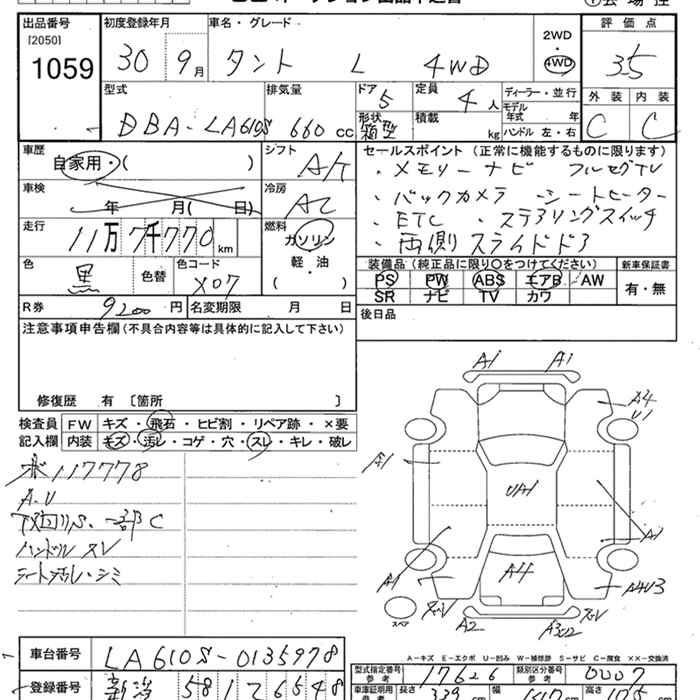 出品番号
[2050]
1059
初度登録年月
30 9月
車名・グレード
タント L 4WD
2WD
4WD
評価点
3.5
型式
DBA-LA610S
排気量
660 cc
ドア
5
定員
4人
形状
箱型
積載
kg
ディーラー・並行
モデル
年式 年
ハンドル 左・右
外装 内装
C C
車歴
自家用・( )
シフト
A/T
セールスポイント (正常に機能するものに限ります)
・メモリーナビ フルセグTV
・バックカメラ シートヒーター
・ETC ・ステアリングスイッチ
・両側スライドドア
車検
年 月( 日)
冷房
AC
走行
11万7千770km
燃料
ガソリン
軽・油
( ・ )
色
黒
色替
色コード
X07
装備品(純正品に限り〇をつけてください)
PS PW ABS エアB AW
SR ナビ TV カワ
新車保証書
有・無
R券
9200円
名変期限 月 日
後日品
注意事項申告欄(不具合内容等は具体的に記入して下さい)
修復歴 有 〔箇所 〕
検査員
記入欄
FW キズ・飛石・ヒビ割・リペア跡・×要
内装 キズ・汚レ・コゲ・穴・スレ・キレ・破レ
117778
A.U
下回りS.一部C
ハンドルスレ
シート汚レ・シミ
A1 A1
A4
U1
A1
UA1
A1
A4
A1
A4U3
A2
A3U2
スペア
A-キズ E-エクボ U-凹み W-補修跡 S-サビ C-腐食 ××-交換済
車台番号
LA610S-0135978
型式指定番号
参考
17626
類別区分番号
参考
0007
登録番号
新潟 581 26548
車庫証明用
参考
長さ
339
cm
幅
147
cm
高さ
175
cm